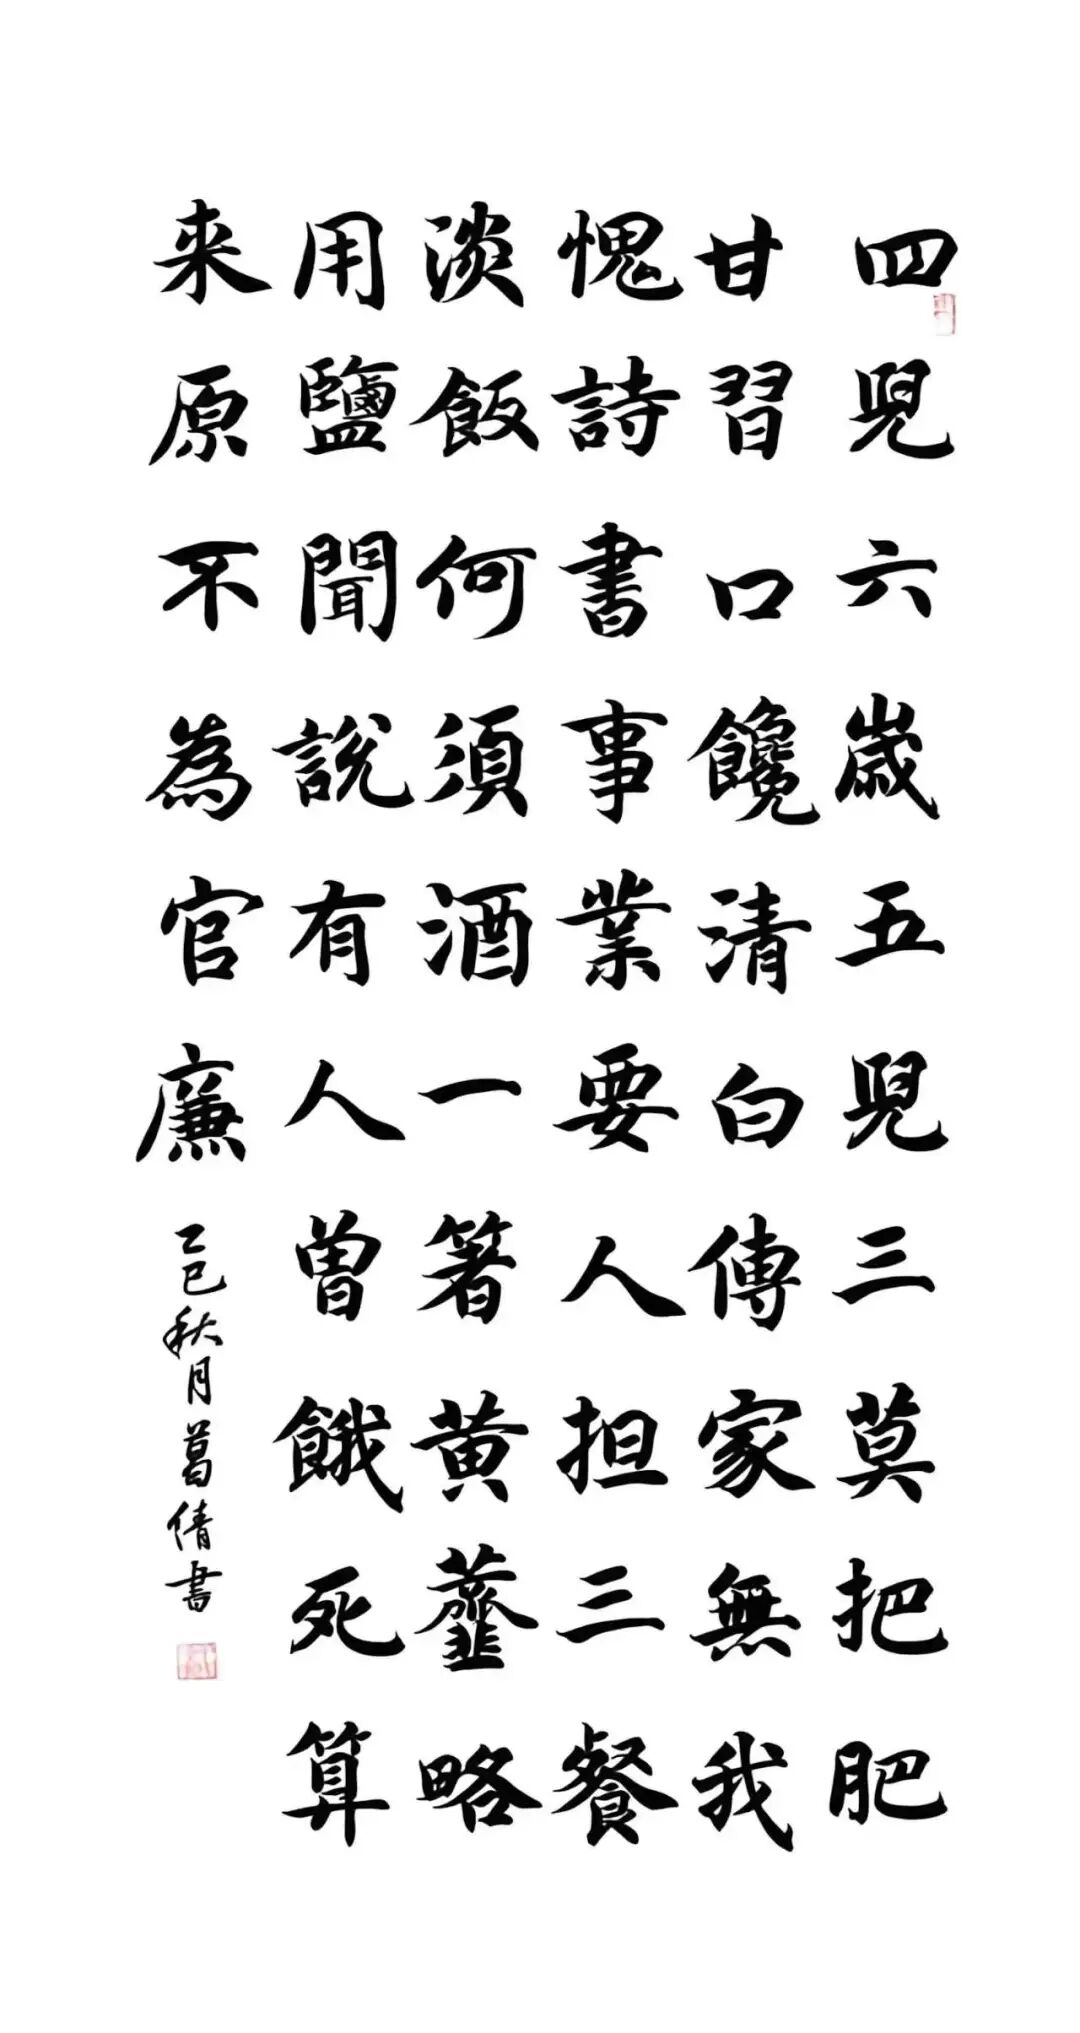 四兒六歲五兒三莫把肥
甘習口饞清白傳家無我
愧詩書事業要人担三餐
淡飯何須酒一箸黄虀略
用鹽聞說有人曾餓死算
来原不為官廉
乙巳秋月葛倩書